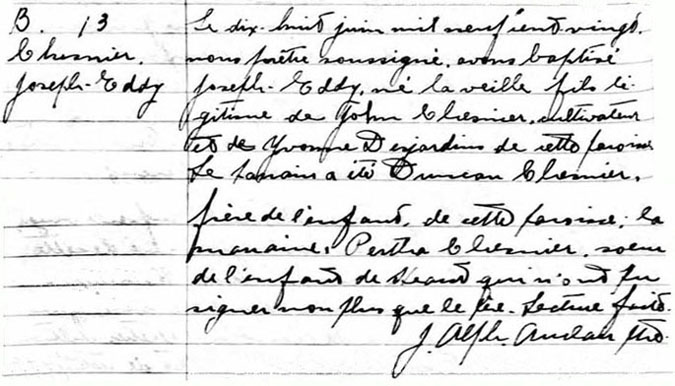 B. 13
Chesnier,
Joseph-Eddy
Le dix-huit juin mil neuf cent vingt,
nous prêtre soussigné, avons baptisé
Joseph-Eddy, né la veille fils lé-
gitime de John Chesnier, cultivateur
et de Yvonne Desjardins de cette paroisse
Le parrain a été Duncan Chesnier,
frère de l'enfant, de cette paroisse; la
marraine, Bertha Chesnier, soeur
de l'enfant de qui n'ont pu
signer non plus que le père. Lecture faite.
J. Alph. ptre.